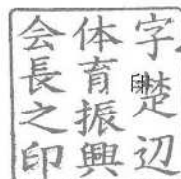 字楚辺
体育振興
会長之印
印